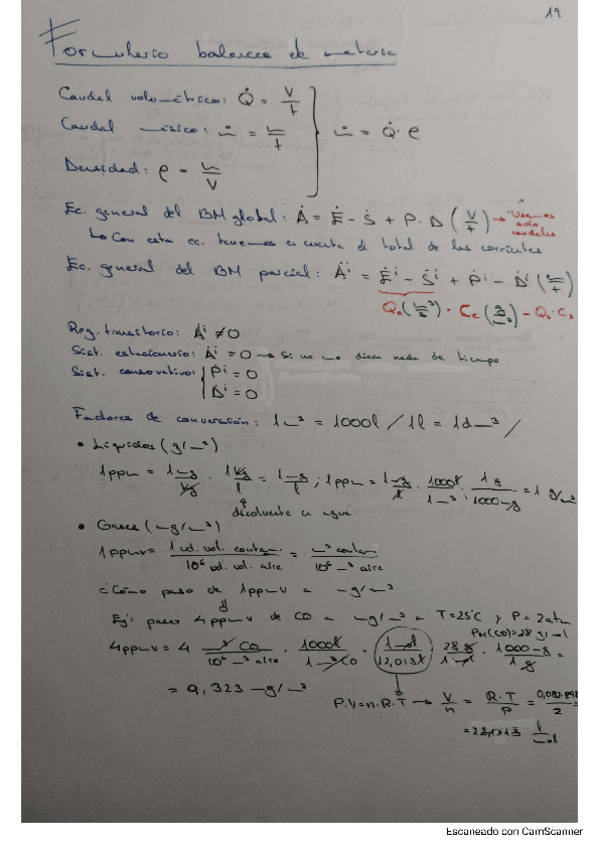 19
Formulario balances de materia
Caudal volumétrico: Q̇ = V/t
Caudal másico: ṁ = m/t } ṁ = Q̇·ρ
Densidad: ρ = m/V
Ec. general del BM global: Ȧ = Ė - Ṡ + P - D (V/t) → "Usamos solo caudales
↳ Con esta ec. tenemos en cuenta el total de las corrientes
Ec. general del BM parcial: Ȧi = Ėi - Ṡi + Ṗi - Ḋi (m/t)
Qe(m³/t) · Ce(g/m³) - Qs·Cs
Reg. transitorio: Ȧi ≠ 0
Sist. estacionario: Ȧi = 0 → Si no me dicen nada de tiempo
Sist. conservativo: { Ṗi = 0
Ḋi = 0
Factores de conversión: 1m³ = 1000l / 1l = 1dm³ /
• Líquidos (g/m³)
1ppm = 1mg/kg · 1kg/l = 1mg/l ; 1ppm = 1mg/l · 1000l/1m³ · 1g/1000mg = 1 g/m³
disolvente en agua
• Gases (mg/m³)
1ppmv = 1 ud. vol. contam./10⁶ ud. vol. aire = m³ contam./10⁶ m³ aire
¿Cómo paso de 1ppmv a mg/m³
Ej: pasar 4ppmv de CO a mg/m³ a T=25°C y P=2atm
PM(CO)=28g/mol
4ppmv = 4 m³ CO/10⁶ m³ aire · 1000l/1m³CO · 1mol/12,013l · 28g/1mol · 1000mg/1g =
= 9,323 mg/m³
P·V=n·R·T → V/n = R·T/P = 0,082·298/2 =
=12,013 l/mol
Escaneado con CamScanner